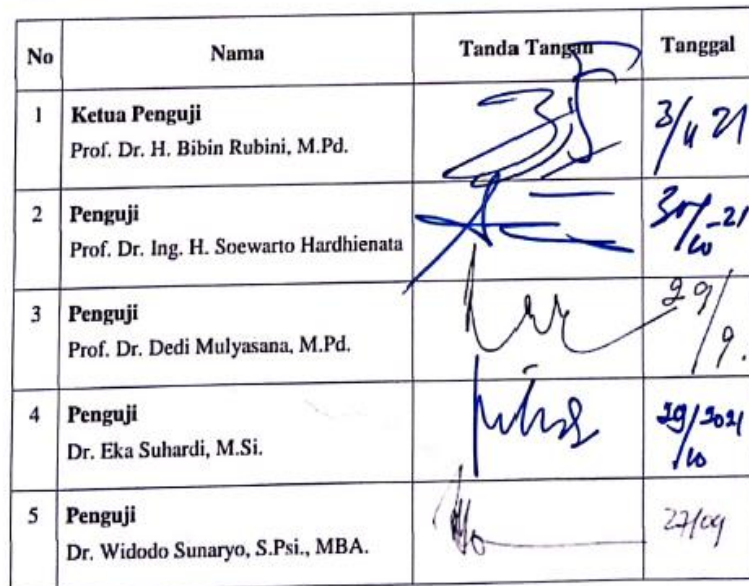 No Nama Tanda Tangan Tanggal
1 Ketua Penguji
Prof. Dr. H. Bibin Rubini, M.Pd.
3/11 21
2 Penguji
Prof. Dr. Ing. H. Soewarto Hardhienata
30/10-21
3 Penguji
Prof. Dr. Dedi Mulyasana, M.Pd.
29/9.
4 Penguji
Dr. Eka Suhardi, M.Si.
29/10 2021
5 Penguji
Dr. Widodo Sunaryo, S.Psi., MBA.
27/09